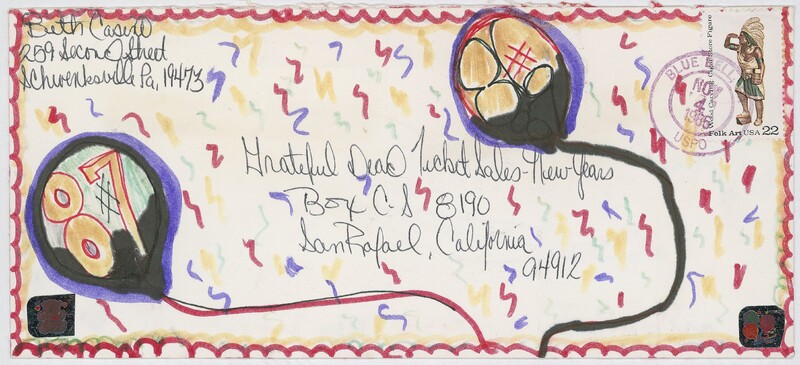 Beth
259 Second Street
Schwenksville Pa, 19473
BLUE BELL
NOV
4
1986
USPO
Wood Carving: Cigar-Store Figure
Folk Art USA 22
Grateful Dead Ticket Sales - New Years
Box C-S 8190
San Rafael, California
94912
87